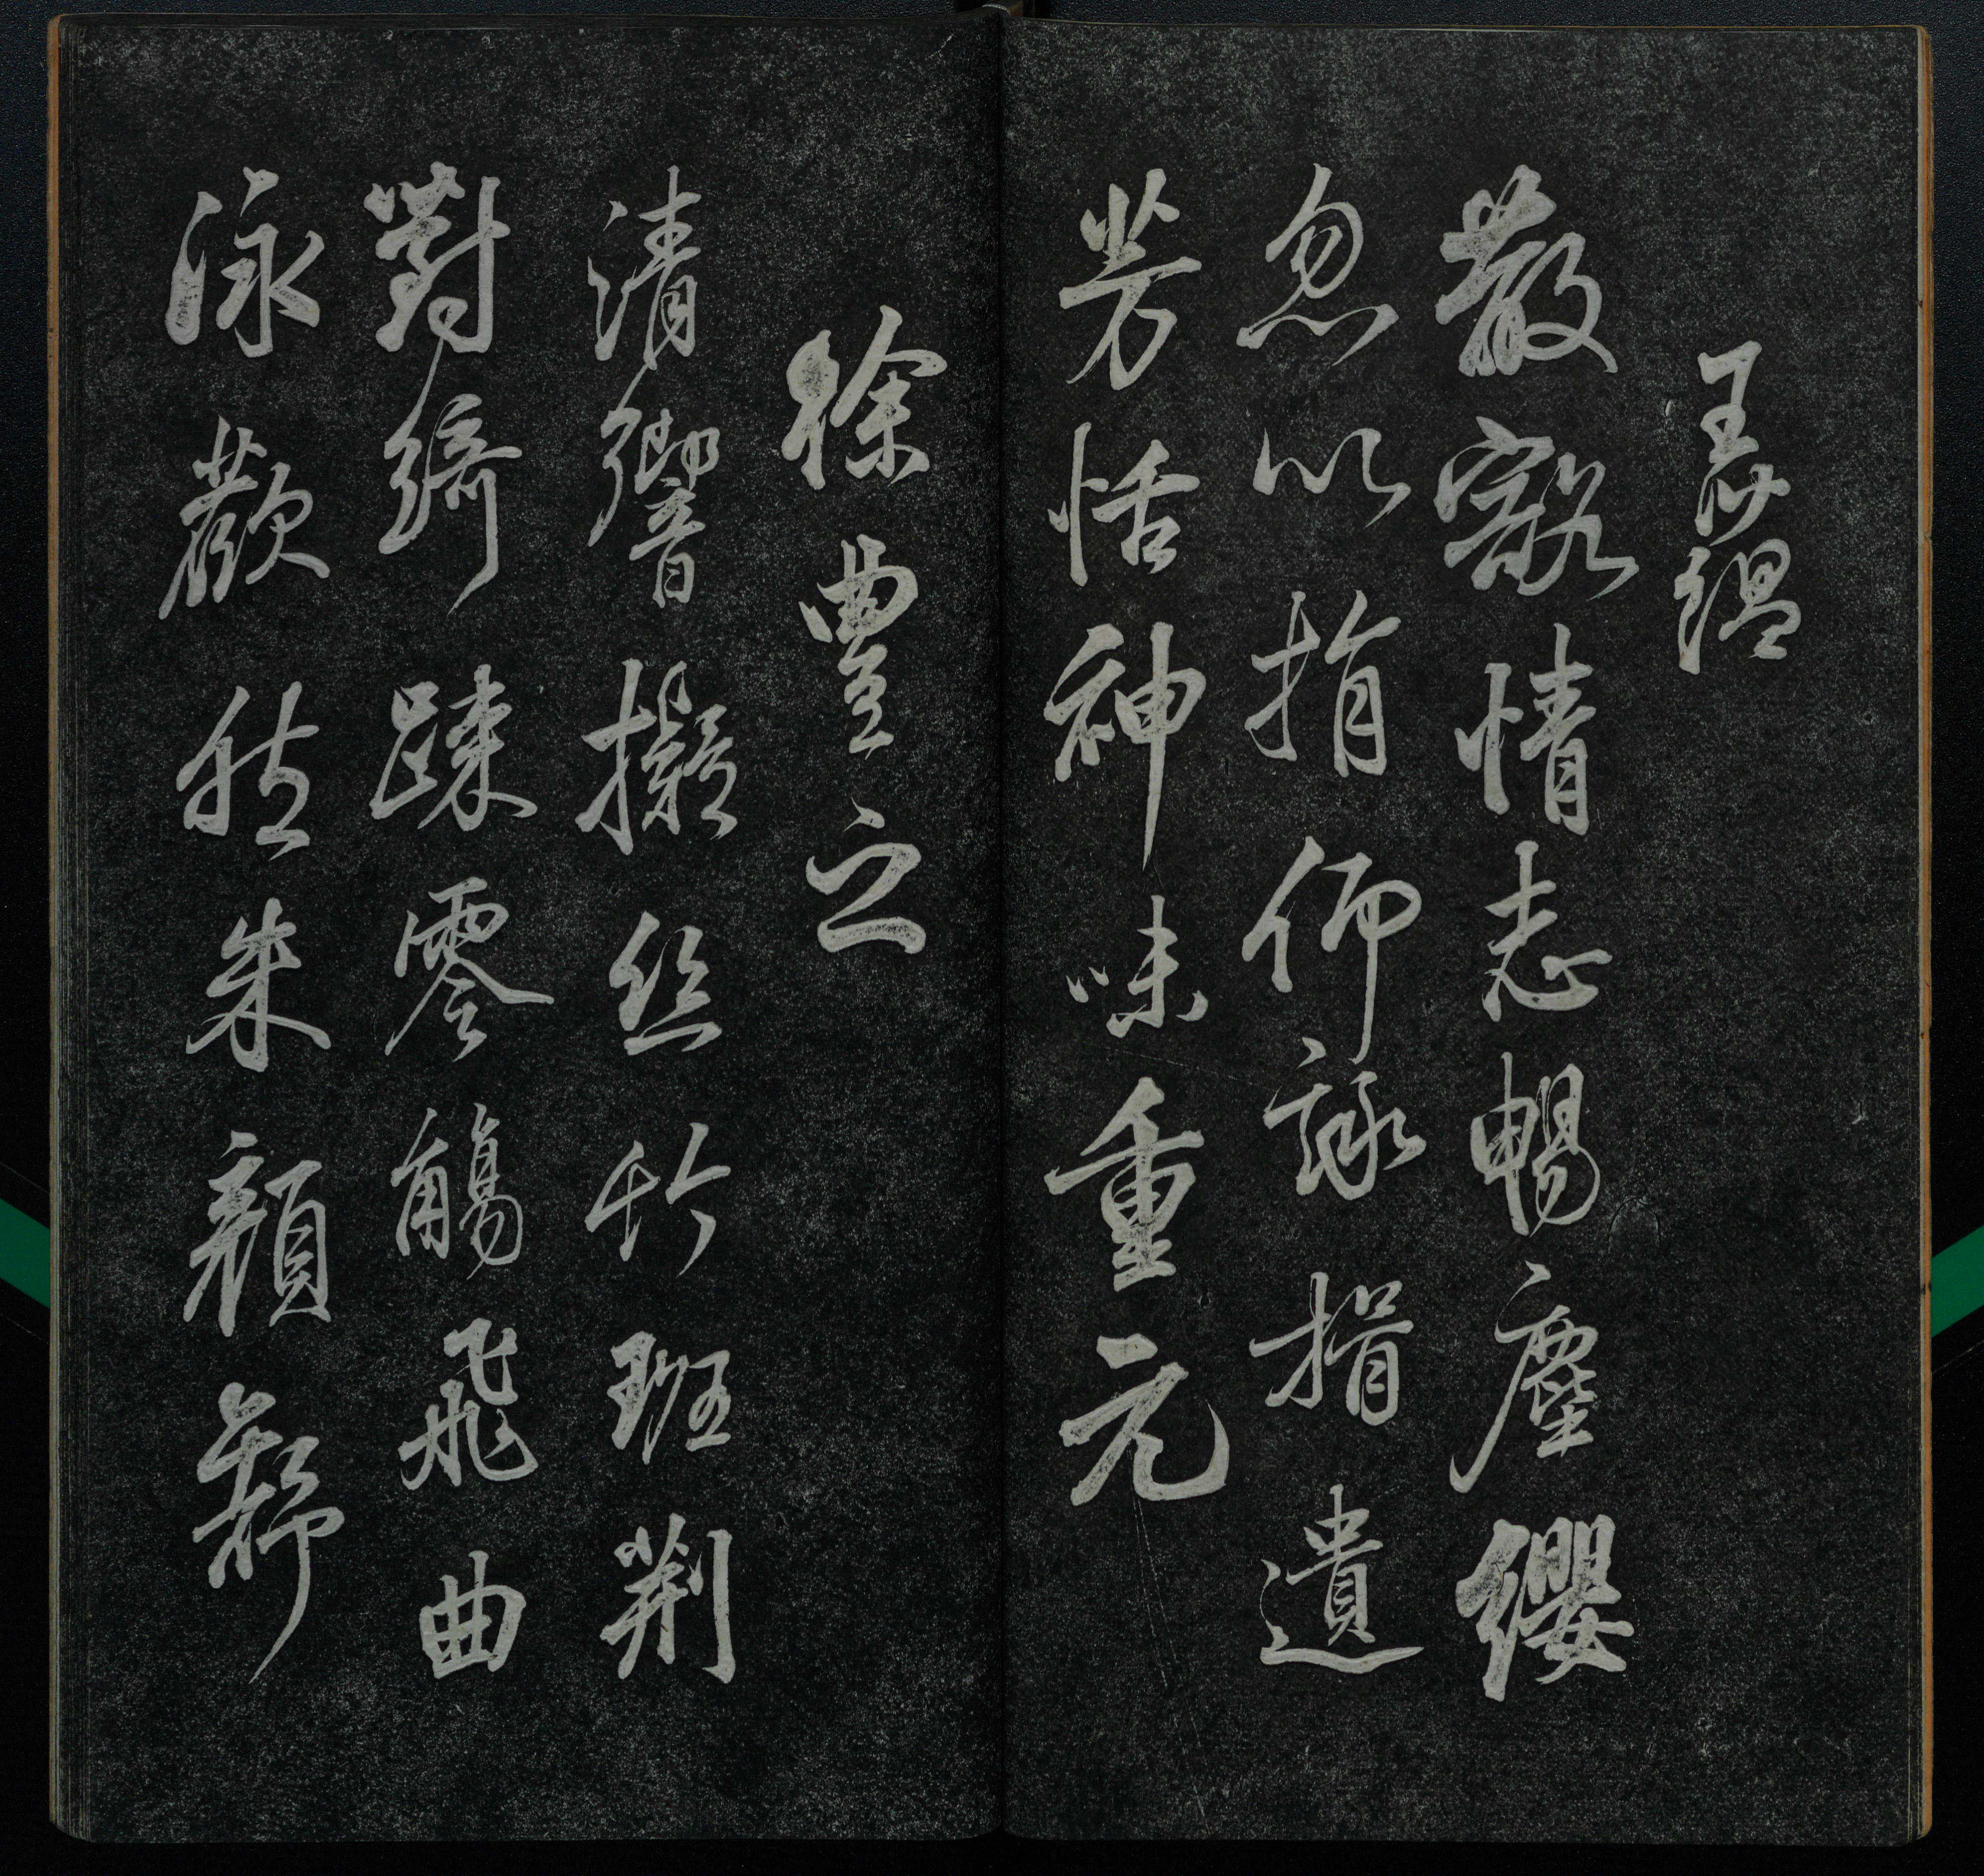 王蘊
散豁情志暢塵纓
忽以捐仰詠揖遺
芳恬神味重元
徐豐之
清響擬絲竹班荊
對綺踈零觴飛曲
泳歡然朱顏舒